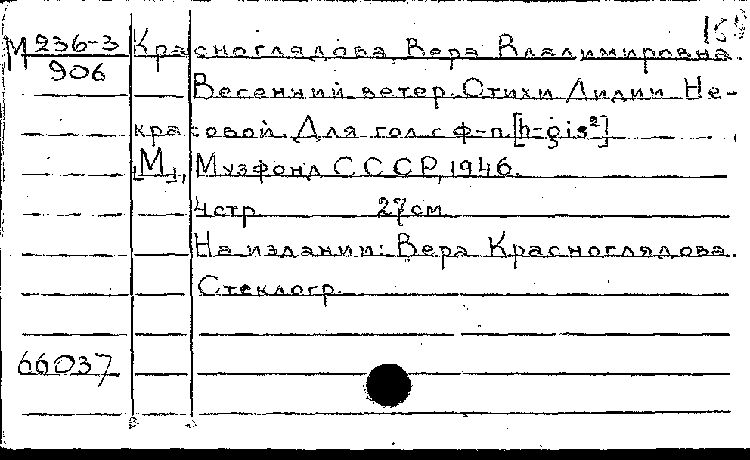 М 236-3 Красноглядова, Вера Владимировна.
906
Весенний ветер. Стихи Лидии Не-
красовой. Для гол. с ф-п. [h-gis²]
[М.], Музфонд СССР, 1946.
4 стр. 27 см.
На издании: Вера Красноглядова.
Стеклогр.
66037